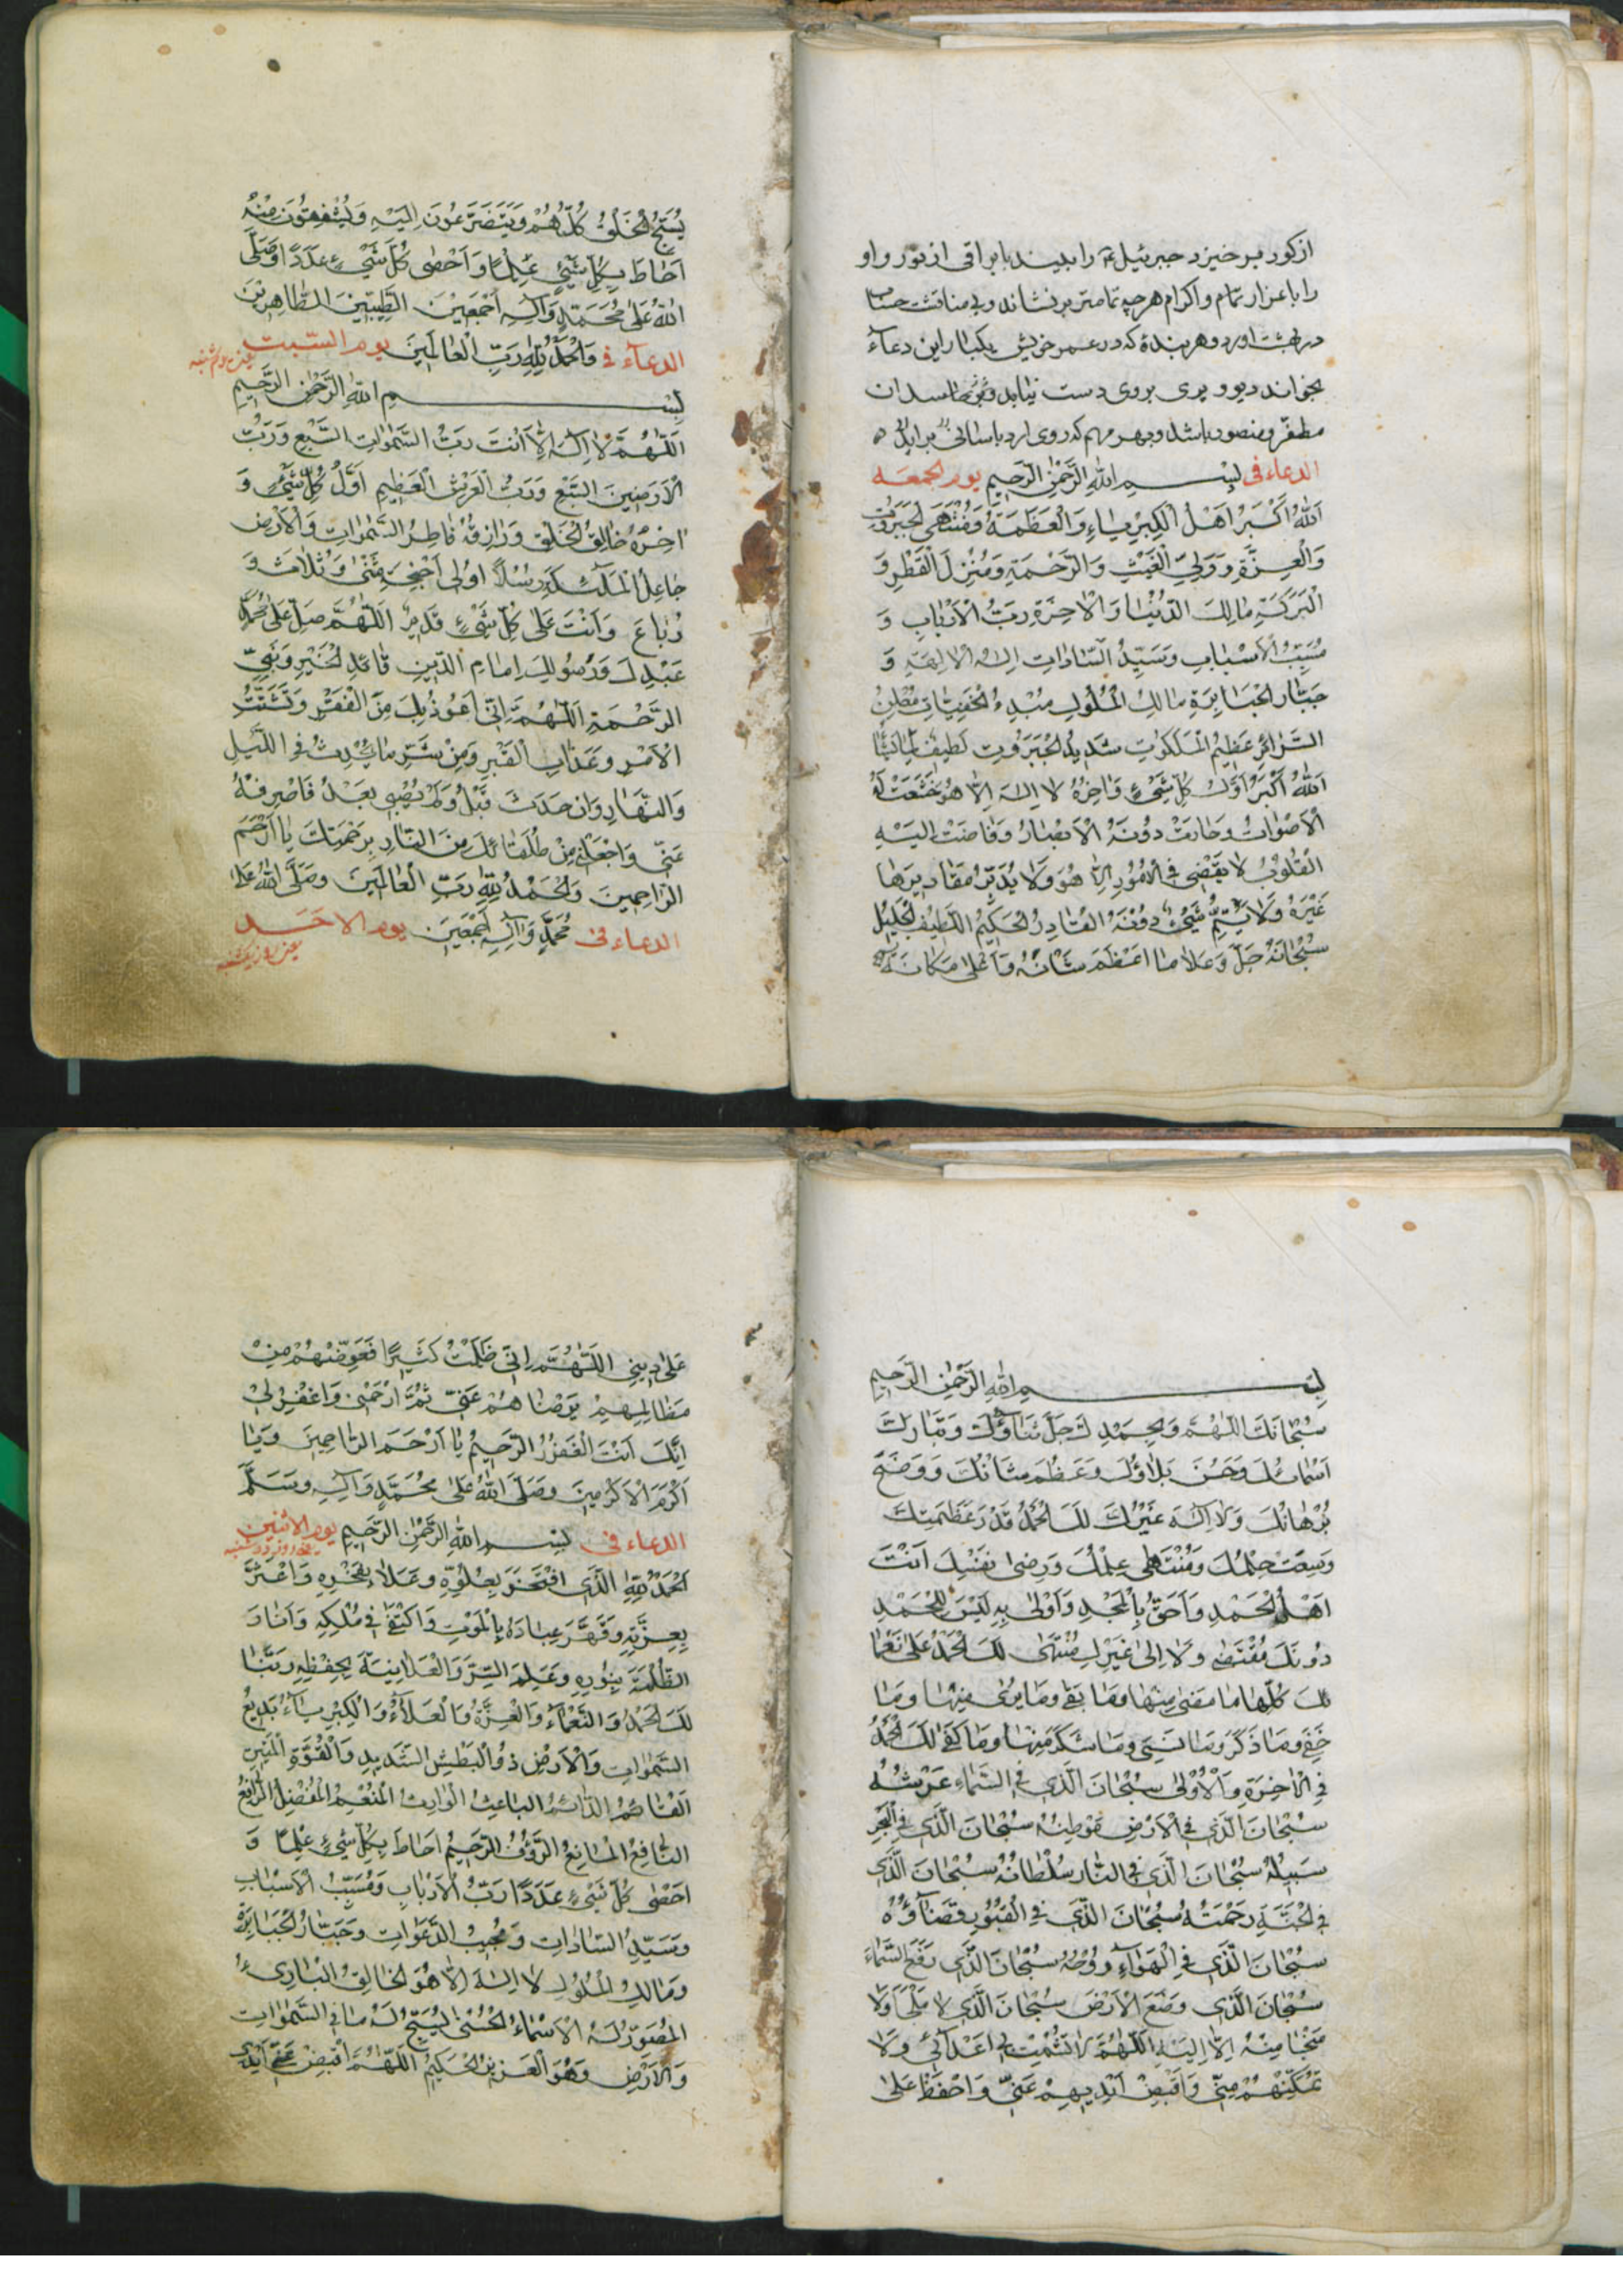 از کور برخیزد جبرئیل ع را ببیند با براقی از نور و او
را باعزاز تمام و اکرام هرچه تمامتر برنشاند و بی مناقشت حساب
در بهشت اورد و هر بندهٔ که در عمر خویش یکبار این دعاء
بخواند دیو و پری بر وی دست نیابد و بر حاسدان
مظفر و منصور باشد و بهر مهم که روی ارد باسانی براید
الدعاء فی بِسْمِ اللهِ الرَّحْمٰنِ الرَّحِيمِ يوم الجمعه
اَللهُ اَكْبَرُ اَهْلَ الْكِبْرِيَاءِ وَالْعَظَمَةِ وَمُنْتَهَى الْجَبَرُوتِ
وَالْعِزَّةِ وَوَلِيَّ الْغَيْثِ وَالرَّحْمَةِ وَمُنْزِلَ الْقَطْرِ وَ
الْبَرَكَةِ مَالِكَ الدُّنْيَا وَالْاخِرَةِ رَبُّ الْاَرْبَابِ وَ
مُسَبِّبُ الْاَسْبَابِ وَسَيِّدُ السَّادَاتِ اِلٰهُ الْالِهَةِ وَ
جَبَّارُ الْجَبَابِرَةِ مَالِكُ الْمُلُوكِ مُبْدِءُ الْخَفِيَّاتِ مُعْلِنُ
السَّرَائِرِ عَظِيمُ الْمَلَكُوتِ شَدِيدُ الْجَبَرُوتِ لَطِيفٌ لِمَا يَشَاءُ
اَللهُ اَكْبَرُ اَوَّلُ كُلِّ شَيْءٍ وَاخِرُهُ لَا اِلٰهَ اِلَّا هُوَ خَشَعَتْ لَهُ
الْاَصْوَاتُ وَحَارَتْ دُونَهُ الْاَبْصَارُ وَفَاضَتْ اِلَيْهِ
الْقُلُوبُ لَا يَقْضِي فِي الْاُمُورِ اِلَّا هُوَ وَلَا يُدَبِّرُ مَقَادِيرَهَا
غَيْرُهُ وَلَا يَتِمُّ شَيْءٌ دُونَهُ الْقَادِرُ الْحَكِيمُ اللَّطِيفُ الْجَلِيلُ
سُبْحَانَهُ جَلَّ وَعَلَا مَا اَعْظَمَ شَانَهُ وَاَعْلَى مَكَانَهُ
يُسَبِّحُ الْخَلْقُ كُلُّهُمْ وَيَتَضَرَّعُونَ اِلَيْهِ وَيُشْفِقُونَ مِنْهُ
اَحَاطَ بِكُلِّ شَيْءٍ عِلْمًا وَاَحْصٰى كُلَّ شَيْءٍ عَدَدًا وَصَلَّى
اللهُ عَلٰى مُحَمَّدٍ وَآلِهِ اَجْمَعِيْنَ الطَّيِّبِينَ الطَّاهِرِيْنَ
الدعاء فی وَالْحَمْدُ لِلّٰهِ رَبِّ الْعَالَمِينَ يوم السّبت
بِسْمِ اللهِ الرَّحْمٰنِ الرَّحِيمِ
اَللّٰهُمَّ لَا اِلٰهَ اِلَّا اَنْتَ رَبُّ السَّمٰوَاتِ السَّبْعِ وَرَبُّ
الْاَرَضِينَ السَّبْعِ وَرَبُّ الْعَرْشِ الْعَظِيمِ اَوَّلُ كُلِّ شَيْءٍ وَ
اخِرُهُ خَالِقُ الْخَلْقِ وَرَازِقُهُ فَاطِرُ السَّمٰوَاتِ وَالْاَرْضِ
جَاعِلُ الْمَلٰئِكَةِ رُسُلًا اُولِي اَجْنِحَةٍ مَثْنٰى وَثُلَاثَ وَ
رُبَاعَ وَاَنْتَ عَلٰى كُلِّ شَيْءٍ قَدِيرٌ اَللّٰهُمَّ صَلِّ عَلٰى مُحَمَّدٍ
عَبْدِكَ وَرَسُولِكَ اِمَامِ الدِّينِ قَائِدِ الْخَيْرِ وَنَبِيِّ
الرَّحْمَةِ اَللّٰهُمَّ اِنِّي اَعُوذُ بِكَ مِنَ الْفَقْرِ وَتَشَتُّتِ
الْاَمْرِ وَعَذَابِ الْقَبْرِ وَمِنْ شَرِّ مَا يَحْدِثُ فِي اللَّيْلِ
وَالنَّهَارِ وَاِنْ حَدَثَ قَبْلُ وَلَمْ يُصِبْنِي بَعْدُ فَاصْرِفْهُ
عَنِّي وَاجْعَلْنِي مِنْ طُلَقَائِكَ مِنَ النَّارِ بِرَحْمَتِكَ يَا اَرْحَمَ
الرَّاحِمِينَ وَالْحَمْدُ لِلّٰهِ رَبِّ الْعَالَمِيْنَ وَصَلَّى اللهُ عَلٰى
الدعاء فی مُحَمَّدٍ وَآلِهِ اَجْمَعِينَ يوم الاحد
یعنی روز یکشنبه
بِسْمِ اللهِ الرَّحْمٰنِ الرَّحِيمِ
سُبْحَانَكَ اللّٰهُمَّ وَبِحَمْدِكَ جَلَّ ثَنَاؤُكَ وَتَبَارَكَ
اَسْمَائُكَ وَحَسُنَ بَلَاؤُكَ وَعَظُمَ شَانُكَ وَوَضَحَ
بُرْهَانُكَ وَلَا اِلٰهَ غَيْرُكَ لَكَ الْحَمْدُ قَدْرَ عَظَمَتِكَ
وَسِعَتْ حِلْمُكَ وَمُنْتَهٰى عِلْمُكَ وَرِضٰى نَفْسِكَ اَنْتَ
اَهْلُ الْحَمْدِ وَاَحَقُّ بِالْمَجْدِ وَاَوْلٰى بِهِ لَيْسَ لِلْحَمْدِ
دُونَكَ مُقْتَصَرٌ وَلَا اِلٰى غَيْرِكَ مُنْتَهٰى لَكَ الْحَمْدُ عَلٰى نَعْمَا
ئِكَ كُلِّهَا مَا مَضٰى مِنْهَا وَمَا بَقِيَ وَمَا يُرٰى مِنْهَا وَمَا
خَفِيَ وَمَا ذُكِرَ وَمَا نُسِيَ وَمَا شُكِرَ مِنْهَا وَمَا كُفِرَ لَكَ الْحَمْدُ
فِي الْاخِرَةِ وَالْاُولٰى سُبْحَانَ الَّذِي فِي السَّمَاءِ عَرْشُهُ
سُبْحَانَ الَّذِي فِي الْاَرْضِ مَوْطِئُهُ سُبْحَانَ الَّذِي فِي الْبَحْرِ
سَبِيلُهُ سُبْحَانَ الَّذِي فِي النَّارِ سُلْطَانُهُ سُبْحَانَ الَّذِي
فِي الْجَنَّةِ رَحْمَتُهُ سُبْحَانَ الَّذِي فِي الْقُبُورِ قَضَاؤُهُ
سُبْحَانَ الَّذِي فِي الْهَوَاءِ رُوحُهُ سُبْحَانَ الَّذِي رَفَعَ السَّمَاءَ
سُبْحَانَ الَّذِي وَضَعَ الْاَرْضَ سُبْحَانَ الَّذِي لَا مَلْجَأَ وَلَا
مَنْجَا مِنْهُ اِلَّا اِلَيْهِ اَللّٰهُمَّ لَا تُشْمِتْ بِي اَعْدَائِي وَلَا
تُمَكِّنْهُمْ مِنِّي وَاقْبِضْ اَيْدِيهِمْ عَنِّي وَاحْفَظْ عَلٰى
عَلٰى دِينِي اَللّٰهُمَّ اِنِّي ظَلَمْتُ كَثِيرًا فَعَوِّضْهُمْ مِنْ
مَظَالِمِهِمْ بِرَضَاهُمْ عَنِّي ثُمَّ ارْحَمْنِي وَاغْفِرْ لِي
اِنَّكَ اَنْتَ الْغَفُورُ الرَّحِيمُ يَا اَرْحَمَ الرَّاحِمِينَ وَيَا
اَكْرَمَ الْاَكْرَمِينَ وَصَلَّى اللهُ عَلٰى مُحَمَّدٍ وَآلِهِ وَسَلَّمَ
الدعاء فی بِسْمِ اللهِ الرَّحْمٰنِ الرَّحِيمِ يوم الاثنين
یعنی روز دوشنبه
اَلْحَمْدُ لِلّٰهِ الَّذِي افْتَخَرَ بِعُلُوِّهِ وَعَلَا بِفَخْرِهِ وَاعْتَزَّ
بِعِزَّتِهِ وَقَهَرَ عِبَادَهُ بِالْمَوْتِ وَاكْتَفٰى فِي مُلْكِهِ وَاَنَارَ
الظُّلْمَةَ بِنُورِهِ وَعَلِمَ السِّرَّ وَالْعَلَانِيَةَ بِحِفْظِهِ رَبَّنَا
لَكَ الْحَمْدُ وَالنَّعْمَاءُ وَالْعِزَّةُ وَالْعَلَاءُ وَالْكِبْرِيَاءُ بَدِيعُ
السَّمٰوَاتِ وَالْاَرْضِ ذُو الْبَطْشِ الشَّدِيدِ وَالْقُوَّةِ الْمَتِينِ
الْقَائِمُ الدَّائِمُ الْبَاعِثُ الْوَارِثُ الْمُنْعِمُ الْمُفْضِلُ الرَّافِعُ
النَّافِعُ الْمَانِعُ الرَّؤُفُ الرَّحِيمُ اَحَاطَ بِكُلِّ شَيْءٍ عِلْمًا وَ
اَحْصٰى كُلَّ شَيْءٍ عَدَدًا رَبُّ الْاَرْبَابِ وَمُسَبِّبُ الْاَسْبَابِ
وَسَيِّدُ السَّادَاتِ وَمُجِيبُ الدَّعَوَاتِ وَجَبَّارُ الْجَبَابِرَةِ
وَمَالِكُ الْمُلُوكِ لَا اِلٰهَ اِلَّا هُوَ الْخَالِقُ الْبَارِيءُ
الْمُصَوِّرُ لَهُ الْاَسْمَاءُ الْحُسْنٰى يُسَبِّحُ لَهُ مَا فِي السَّمٰوَاتِ
وَالْاَرْضِ وَهُوَ الْعَزِيزُ الْحَكِيمُ اَللّٰهُمَّ اقْبِضْ عَنِّي اَيْدِي